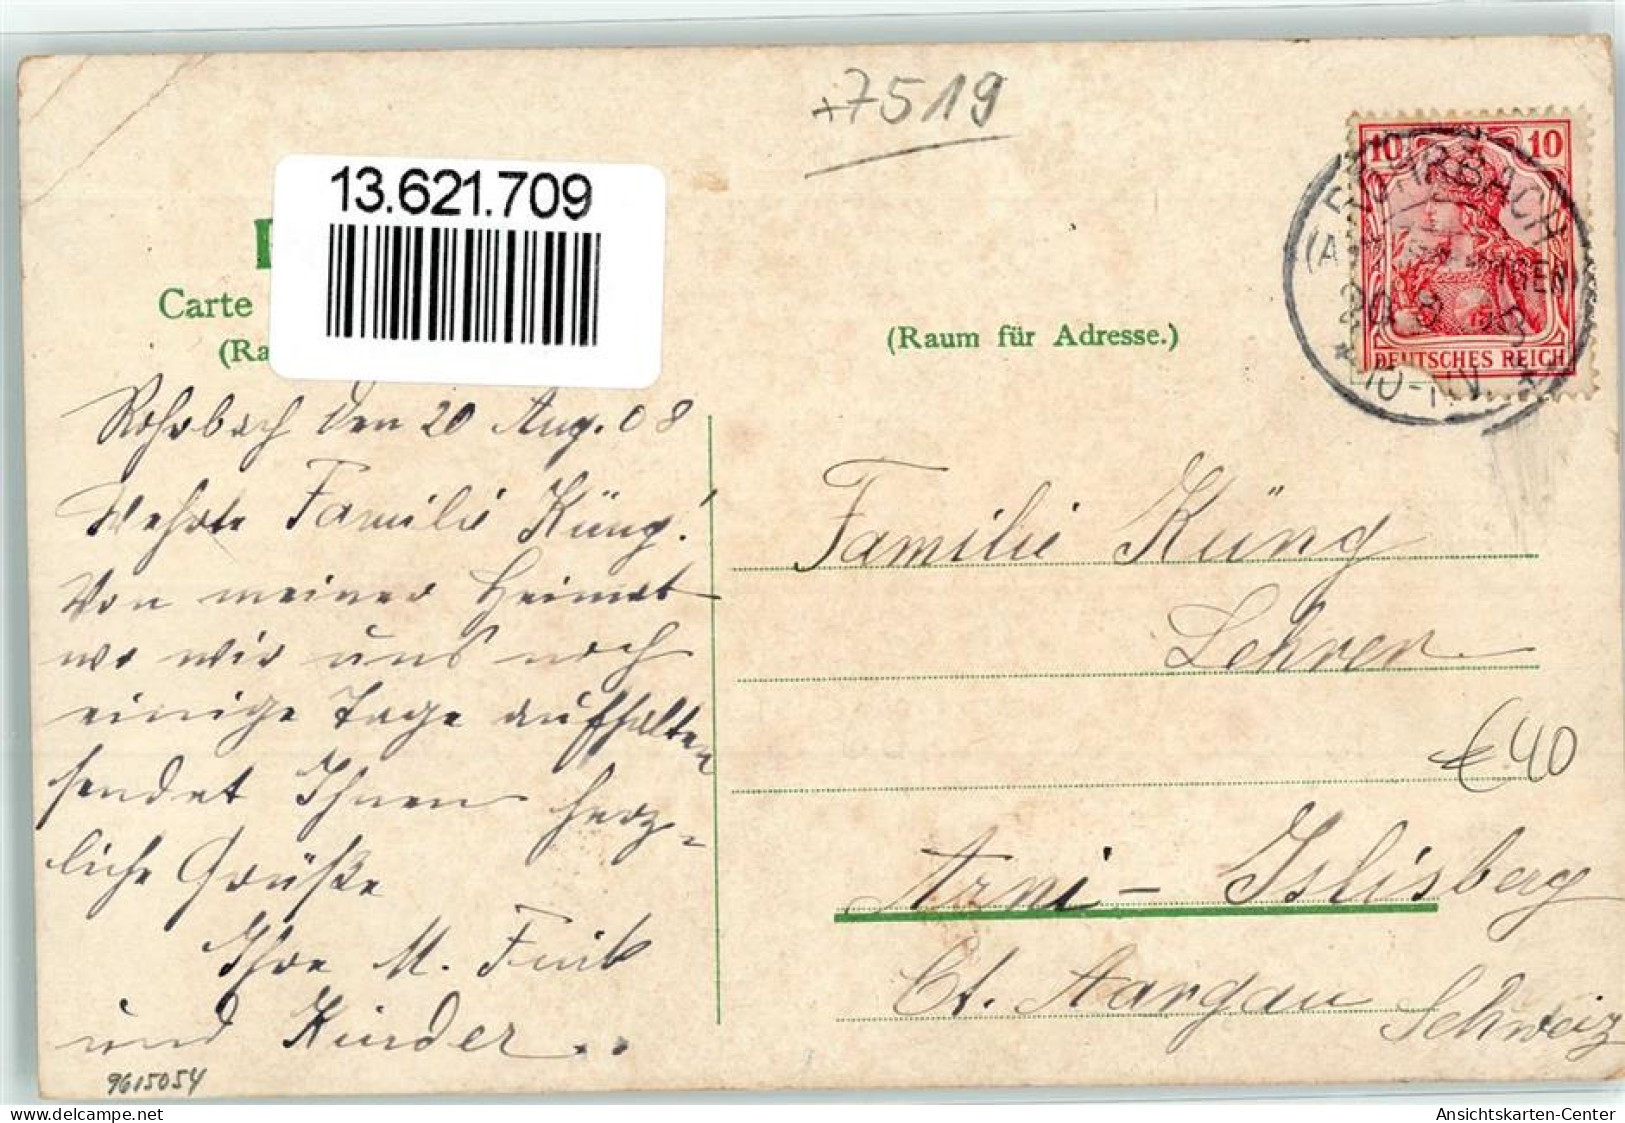 7519
13.621.709
10 10
ROHRBACH
20 8
DEUTSCHES REICH
Carte
(Raum für Adresse.)
(Ra
Rohrbach den 20 Aug. 08
Wehrte Familie Küng!
Von meiner Heimat
wo wir uns noch
einige Tage aufhalten
sendet Ihnen herz-
liche Grüße
Ihre M. Fink
und Kinder..
Familie Küng
Lehrer
€40
Arni - Islisberg
Ct. Aargau Schweiz
9615054
www.delcampe.net
Ansichtskarten-Center